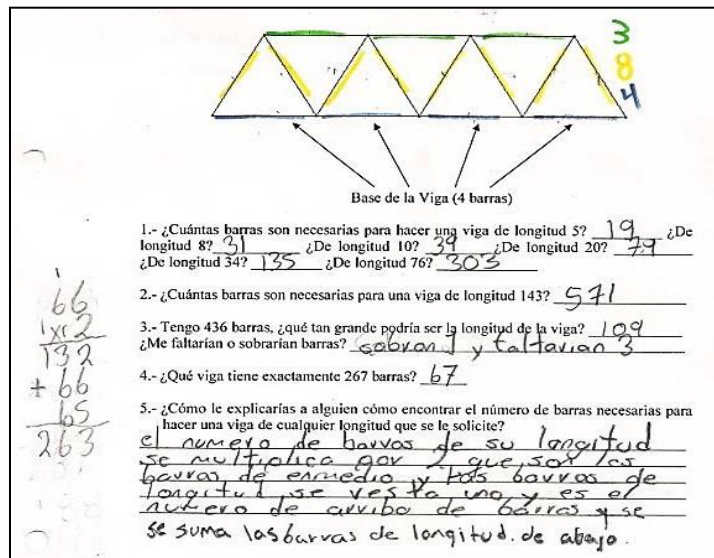 3
8
4
Base de la Viga (4 barras)
1.- ¿Cuántas barras son necesarias para hacer una viga de longitud 5? 19 ¿De
longitud 8? 31 ¿De longitud 10? 39 ¿De longitud 20? 79
¿De longitud 34? 135 ¿De longitud 76? 303
2.- ¿Cuántas barras son necesarias para una viga de longitud 143? 571
3.- Tengo 436 barras, ¿qué tan grande podría ser la longitud de la viga? 109
¿Me faltarían o sobrarían barras? sobran 1 y faltarian 3
4.- ¿Qué viga tiene exactamente 267 barras? 67
5.- ¿Cómo le explicarías a alguien cómo encontrar el número de barras necesarias para
hacer una viga de cualquier longitud que se le solicite?
el numero de barras de su longitud
se multiplica por 2 que son las
barras de enmedio y barras de
longitud se resta uno y es el
numero de arriba de barras y se
se suma las barras de longitud. de abajo.
1
66
x 2
132
+ 66
65
263